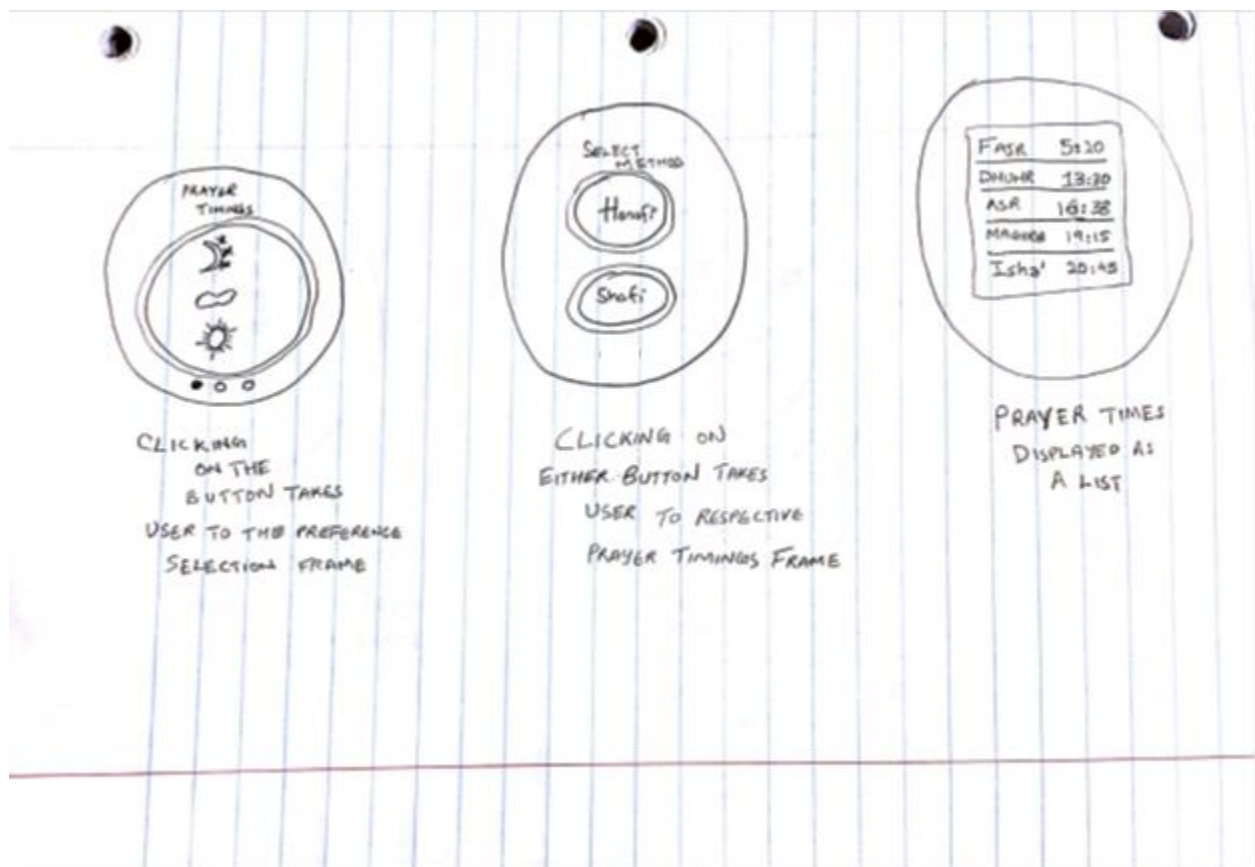 PRAYER
TIMINGS
CLICKING
ON THE
BUTTON TAKES
USER TO THE PREFERENCE
SELECTION FRAME
SELECT
METHOD
Hanafi
Shafi
CLICKING ON
EITHER BUTTON TAKES
USER TO RESPECTIVE
PRAYER TIMINGS FRAME
FAJR 5:20
DHUHR 13:20
ASR 16:38
MAGHRIB 19:15
Isha' 20:45
PRAYER TIMES
DISPLAYED AS
A LIST